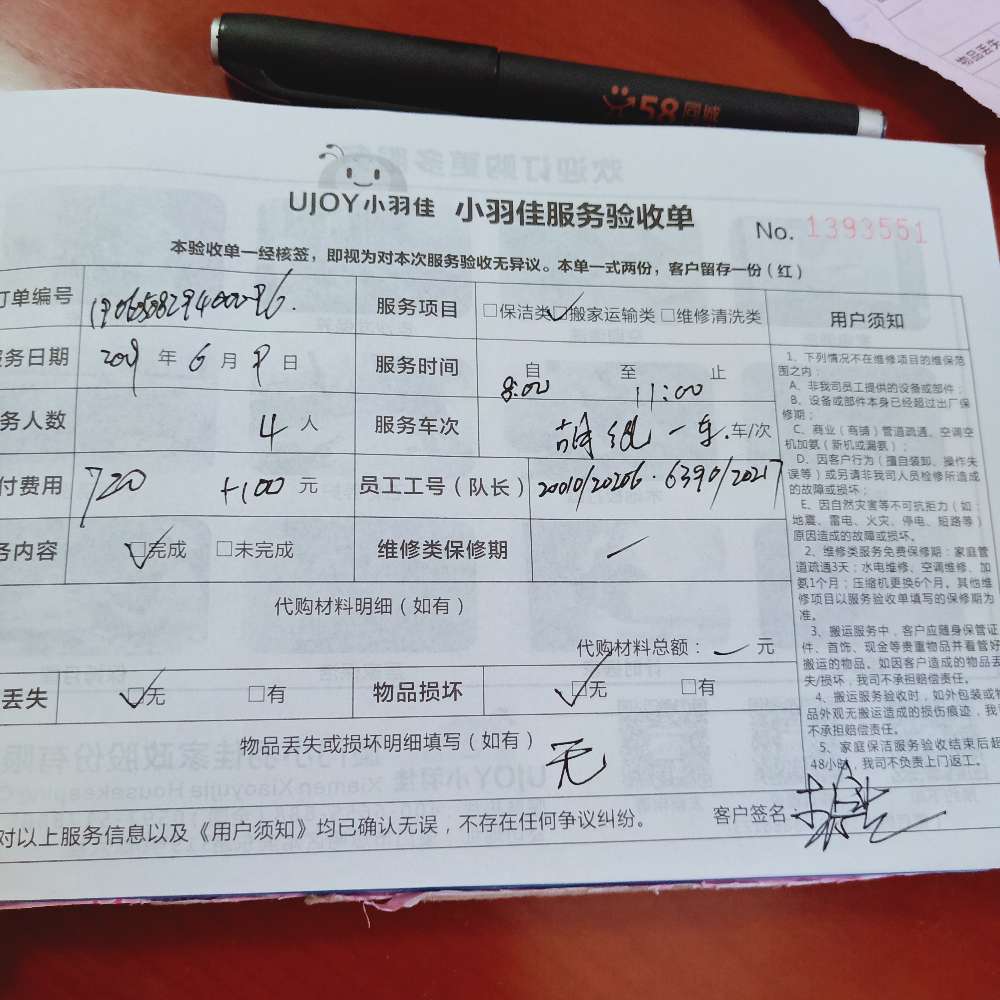 物品丢失
58同城
UJOY小羽佳 小羽佳服务验收单
No. 1393551
本验收单一经核签，即视为对本次服务验收无异议。本单一式两份，客户留存一份（红）
订单编号
服务项目 □保洁类 □搬家运输类 □维修清洗类
服务日期 2019 年 6 月 8 日
服务时间 自 8:00 至 11:00 止
务人数 4 人
服务车次 一车.车/次
付费用 720 +100 元
员工工号（队长） 20010/20206·6390/20217
务内容 □完成 □未完成
维修类保修期 —
代购材料明细（如有）
代购材料总额： — 元
丢失 □无 □有
物品损坏 □无 □有
物品丢失或损坏明细填写（如有） 无
对以上服务信息以及《用户须知》均已确认无误，不存在任何争议纠纷。
客户签名：
用户须知
1、下列情况不在维修项目的维保范
围之内：
A、非我司员工提供的设备或部件；
B、设备或部件本身已经超过出厂保
修期；
C、商业（商铺）管道疏通、空调空
机加氨（新机或漏氨）；
D、因客户行为（擅自装卸、操作失
误等）或另请非我司人员检修所造成
的故障或损坏；
E、因自然灾害等不可抗拒力（如：
地震、雷电、火灾、停电、短路等）
原因造成的故障或损坏。
2、维修类服务免费保修期：家庭管
道疏通3天；水电维修、空调维修、加
氨1个月；压缩机更换6个月。其他维
修项目以服务验收单填写的保修期为
准。
3、搬运服务中，客户应随身保管证
件、首饰、现金等贵重物品并看管好
搬运的物品。如因客户造成的物品丢
失/损坏，我司不承担赔偿责任。
4、搬运服务验收时，如外包装或物
品外观无搬运造成的损伤痕迹，我司
不承担赔偿责任。
5、家庭保洁服务验收结束后超
48小时，我司不负责上门返工。